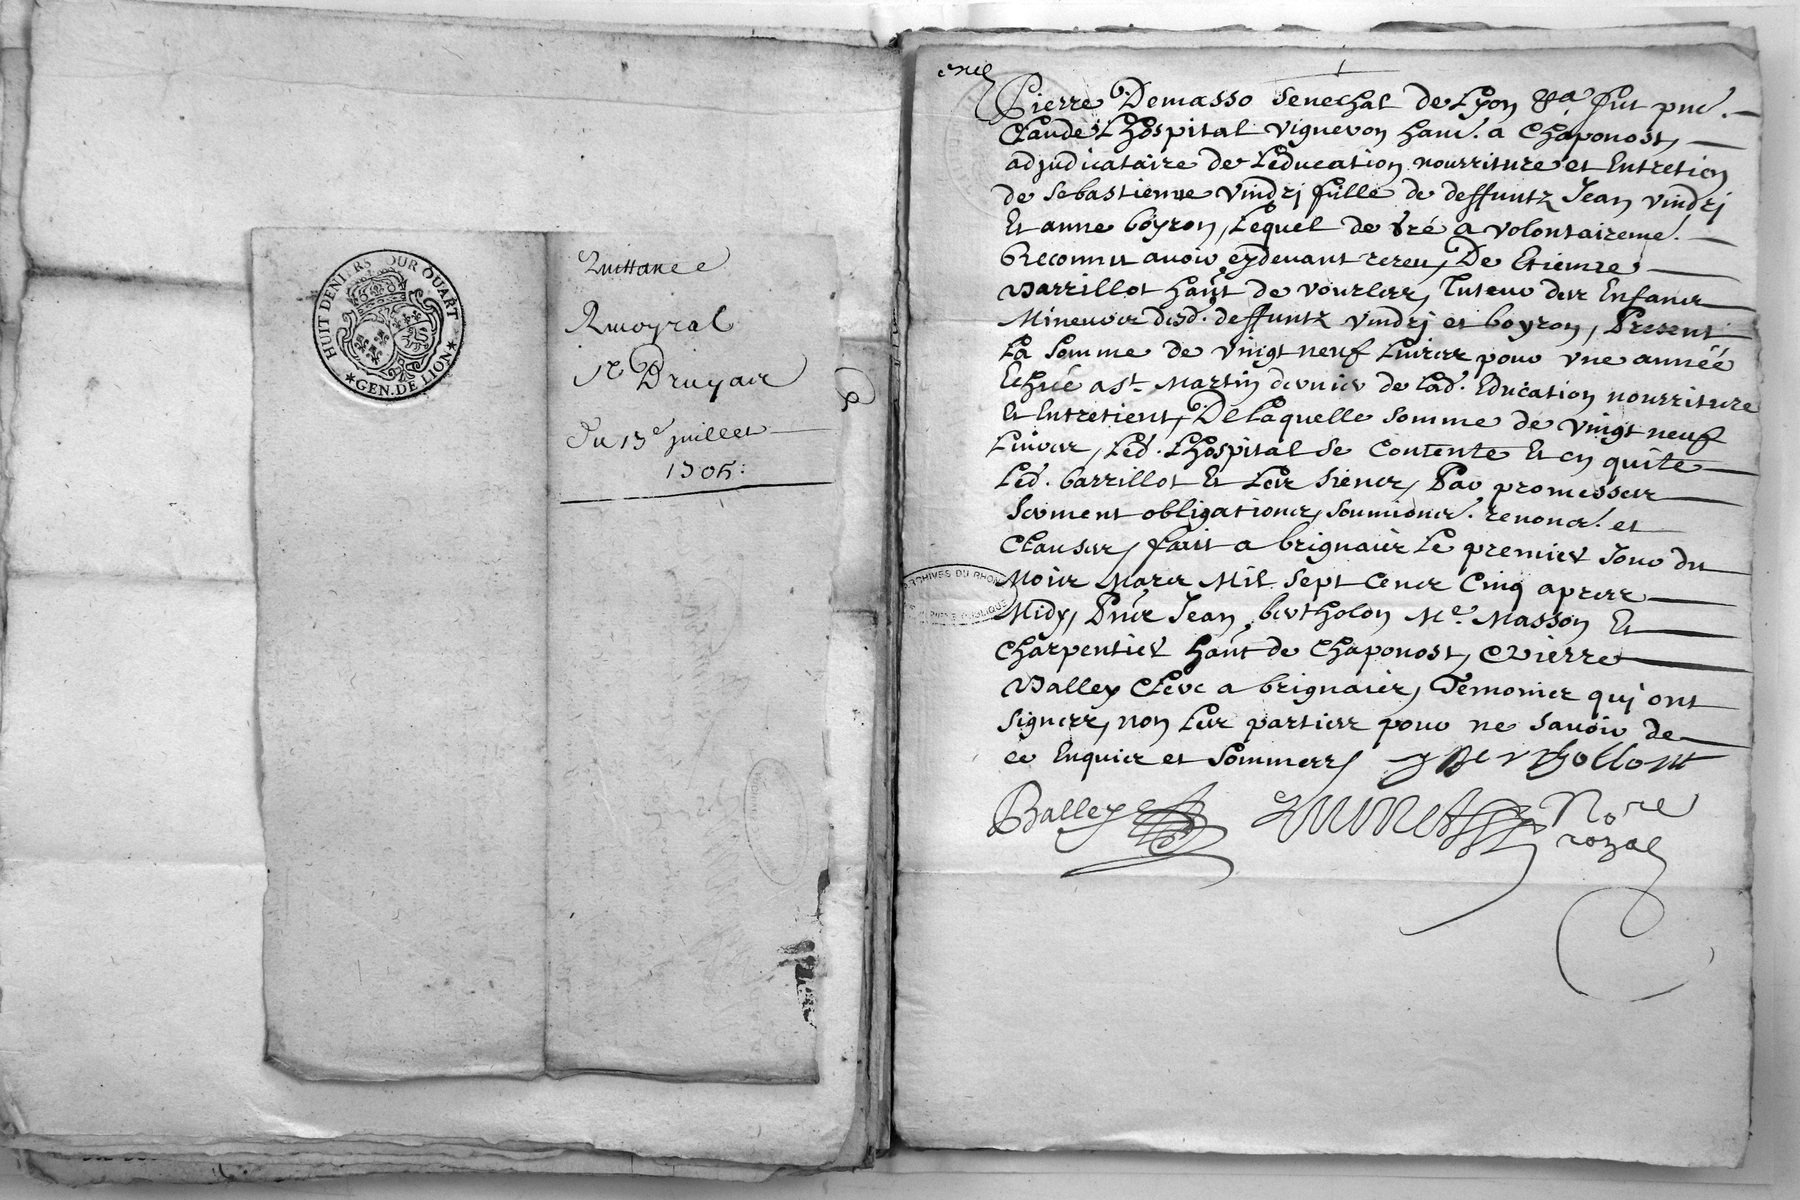 HUIT DENIERS POUR QUART
GEN. DE LION
Quittance
Rmoyral
Sr Druyair
Du 13e juillet
1705:
Pierre Demasso Senechal de Lyon fut pnt.
Claude Lhospital vigneron habt. a Chaponost,
adjudicataire de Leducation nourriture et Entretien
de Sebastienne vindrj fille de deffuntz Jean vindrj
Et anne boyron, Lequel de gré a volontaireme.
Reconnu avoir cydevant receu, De Etienne
Barrillot habt de vourles, Tuteur des Enfans
Mineurs desd. deffuntz vindrj et boyron, Present
La Somme de vingt neuf Livres pour une année
Echue a st. Martin dernier de lad. Education nourriture
Et Entretient, De Laquelle Somme de vingt neuf
Livres, Led. Lhospital Se Contente Et en quite
Led. barrillot Et Les Siens, Par promesses
Serment obligations, soumions. renons. et
Clauses, fait a brignais Le premier Jour du
Mois Mars Mil Sept Cens Cinq apres
Midy, Pnts Jean bertholon Me. Masson Et
Charpentier habt de Chaponost, et pierre
Balley Clerc a brignais, Temoins qui ont
Signes, non Les parties pour ne Savoir de
ce Enquis et Sommes, J Berthollont
Balley
Nore
royal
ARCHIVES DU RHONE